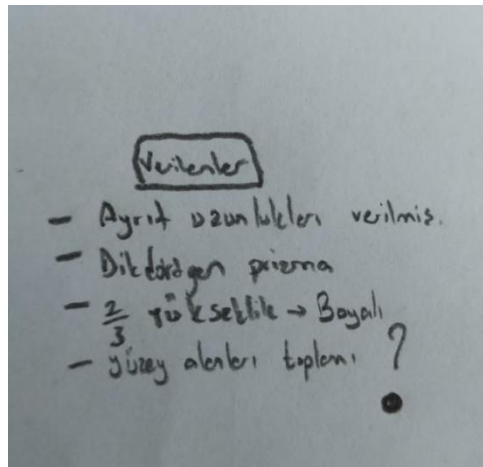 Verilenler
- Ayrıt uzunlukları verilmiş.
- Dikdörtgen prizma
- 2/3 yükseklik → Boyalı
- yüzey alanları toplamı ?